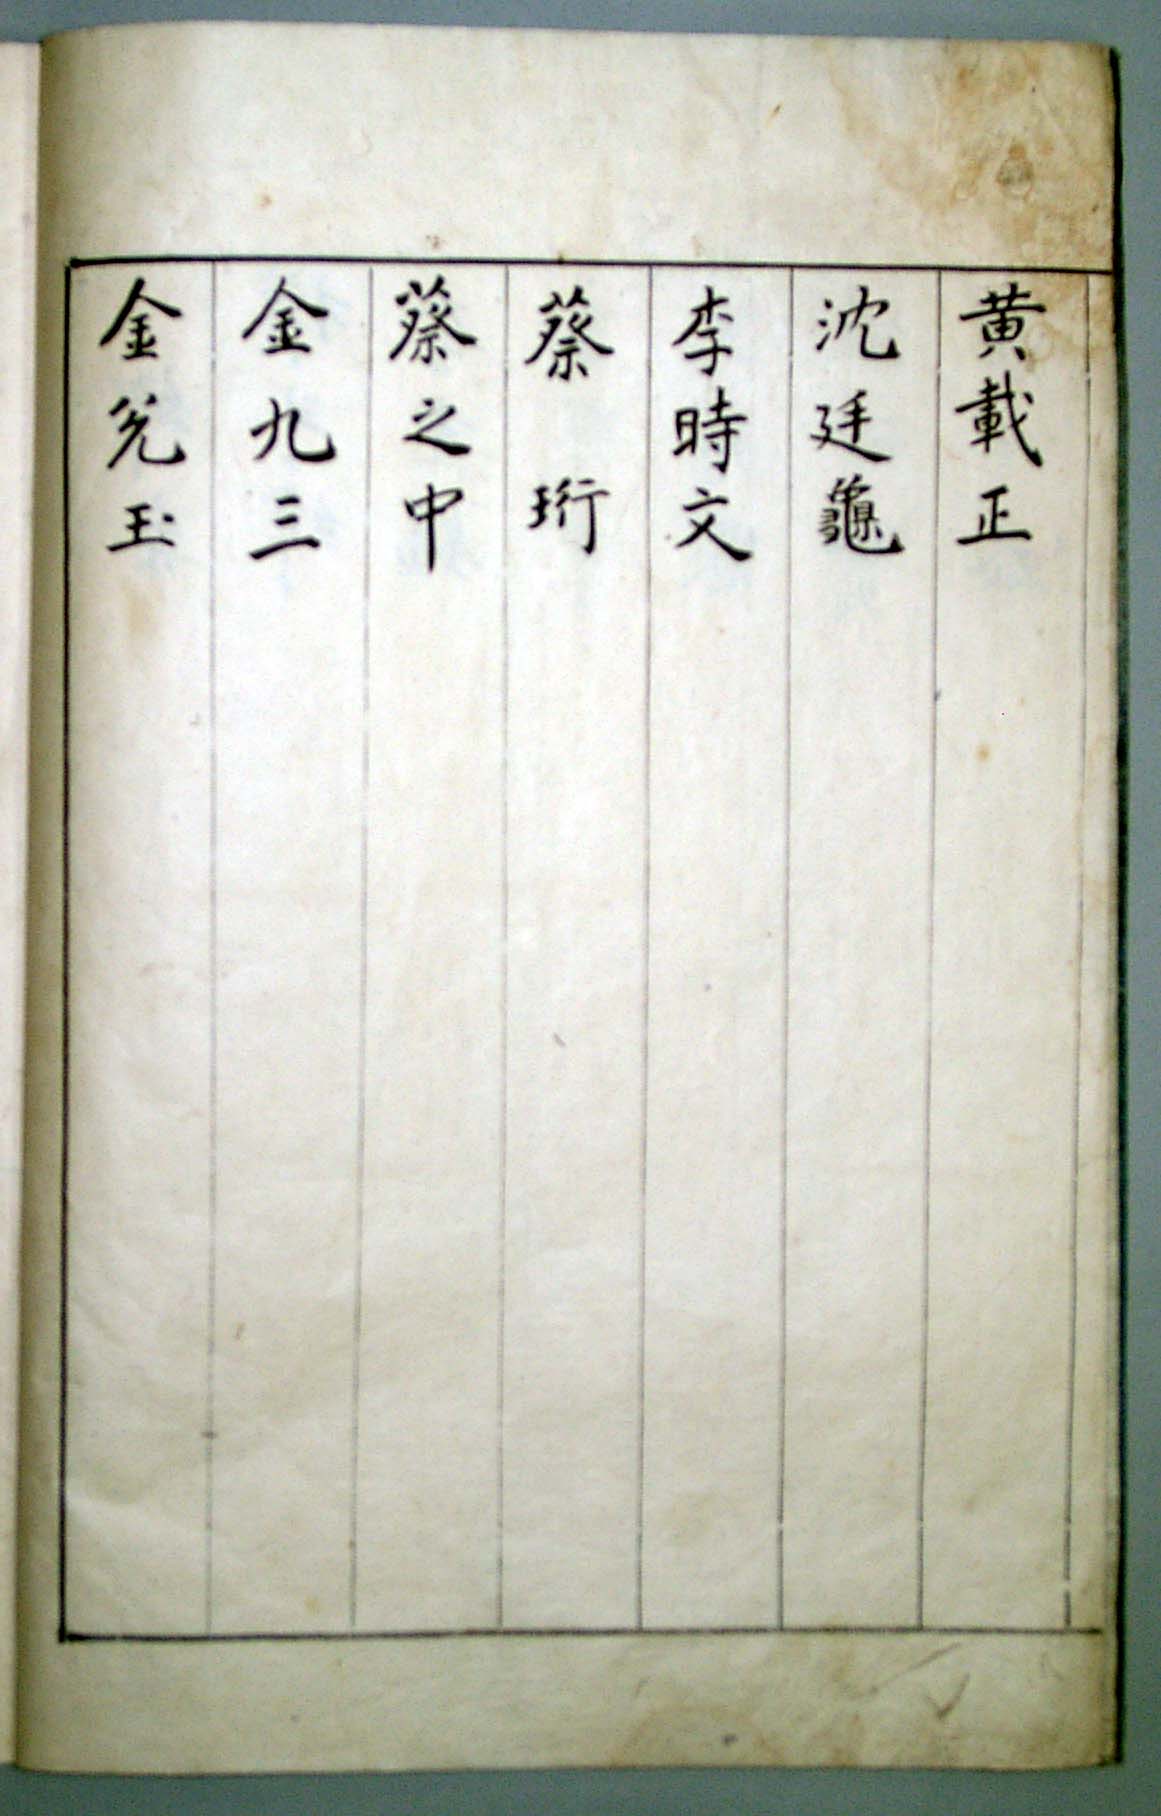 黄載正
沈廷龜
李時文
蔡珩
蔡之中
金九三
金兊玉